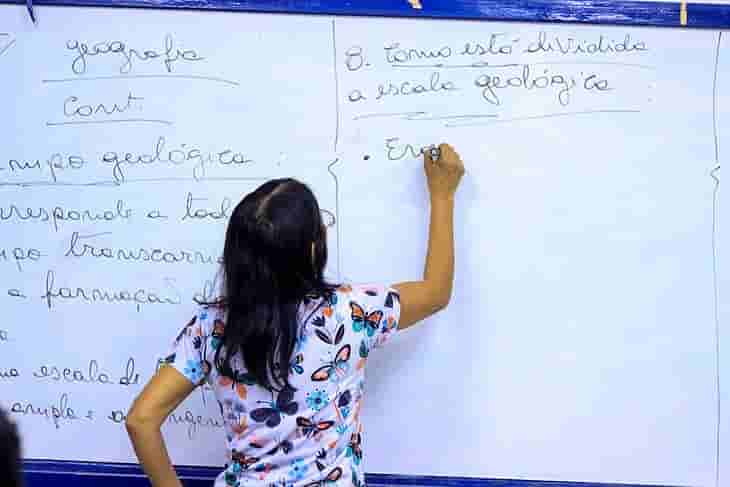 geografia
Cont.
tempo geológica :
corresponde a tod
tempo transcorri
a formação d
escala de
ampla e a
8. Como está dividida
a escala geológica :
• Er